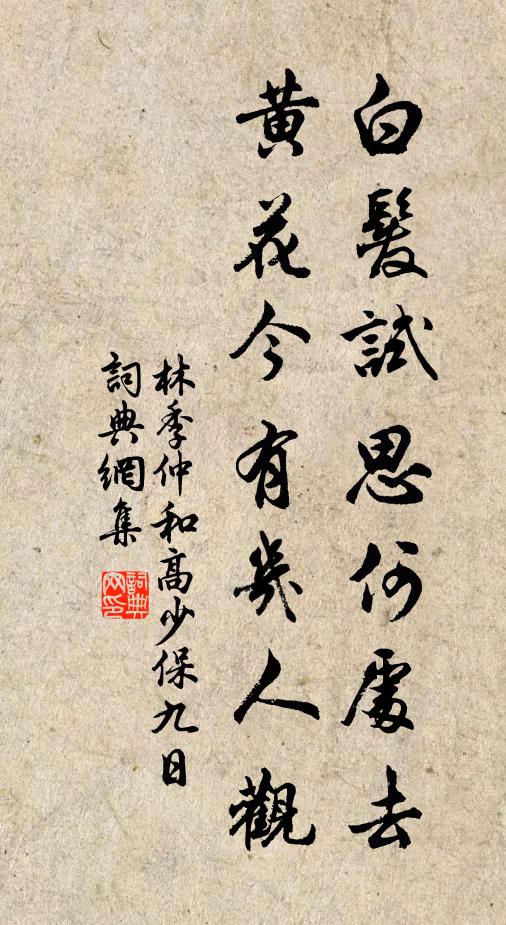 白髮試思何處去
黃花今有幾人觀
林季仲和高少保九日
詞典網集
詞典网印